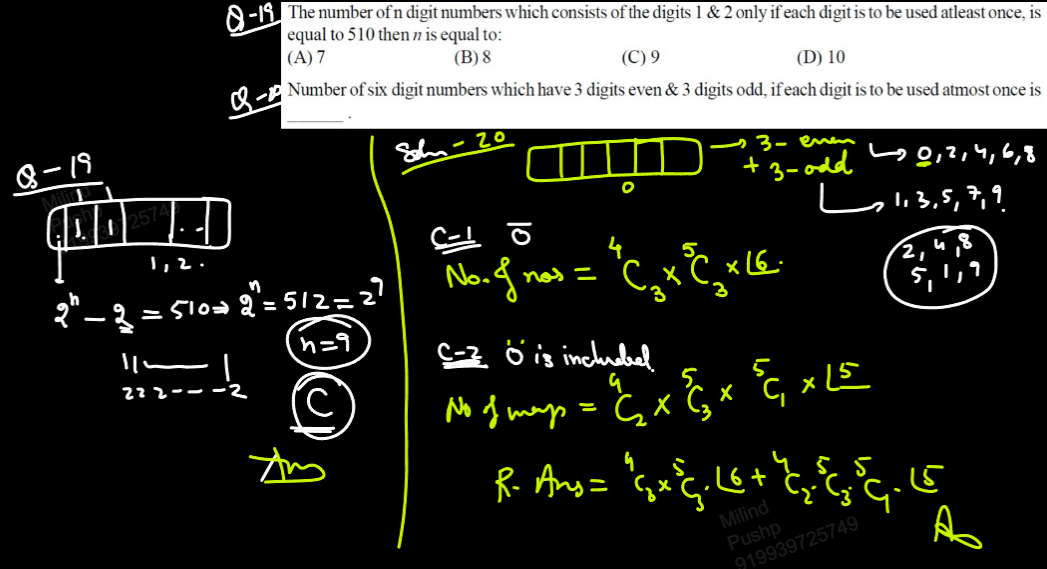 Q-19 The number of n digit numbers which consists of the digits 1 & 2 only if each digit is to be used atleast once, is
equal to 510 then n is equal to:
(A) 7 (B) 8 (C) 9 (D) 10
Q-20 Number of six digit numbers which have 3 digits even & 3 digits odd, if each digit is to be used atmost once is
______ .
Q-19
1 1
. 1 1 . -
1, 2 .
2^n - 2 = 510 ⇒ 2^n = 512 = 2^9
n=9
11—— 1
222 - - - -2
C
Ans
Soln - 20
→ 3- even → 0, 2, 4, 6, 8
+ 3-odd → 1, 3, 5, 7, 9.
0
2, 4, 8
5, 1, 9
C-1 0̅
No. of nos = ⁴C₃ × ⁵C₃ × ⌊6.
C-2 "0" is included
No of = ⁴C₂ × ⁵C₃ × ⁵C₁ × ⌊5
R. Ans = ⁴C₃ × ⁵C₃ . ⌊6 + ⁴C₂ . ⁵C₃ . ⁵C₁ . ⌊5
Milind
Pushp
919939725749